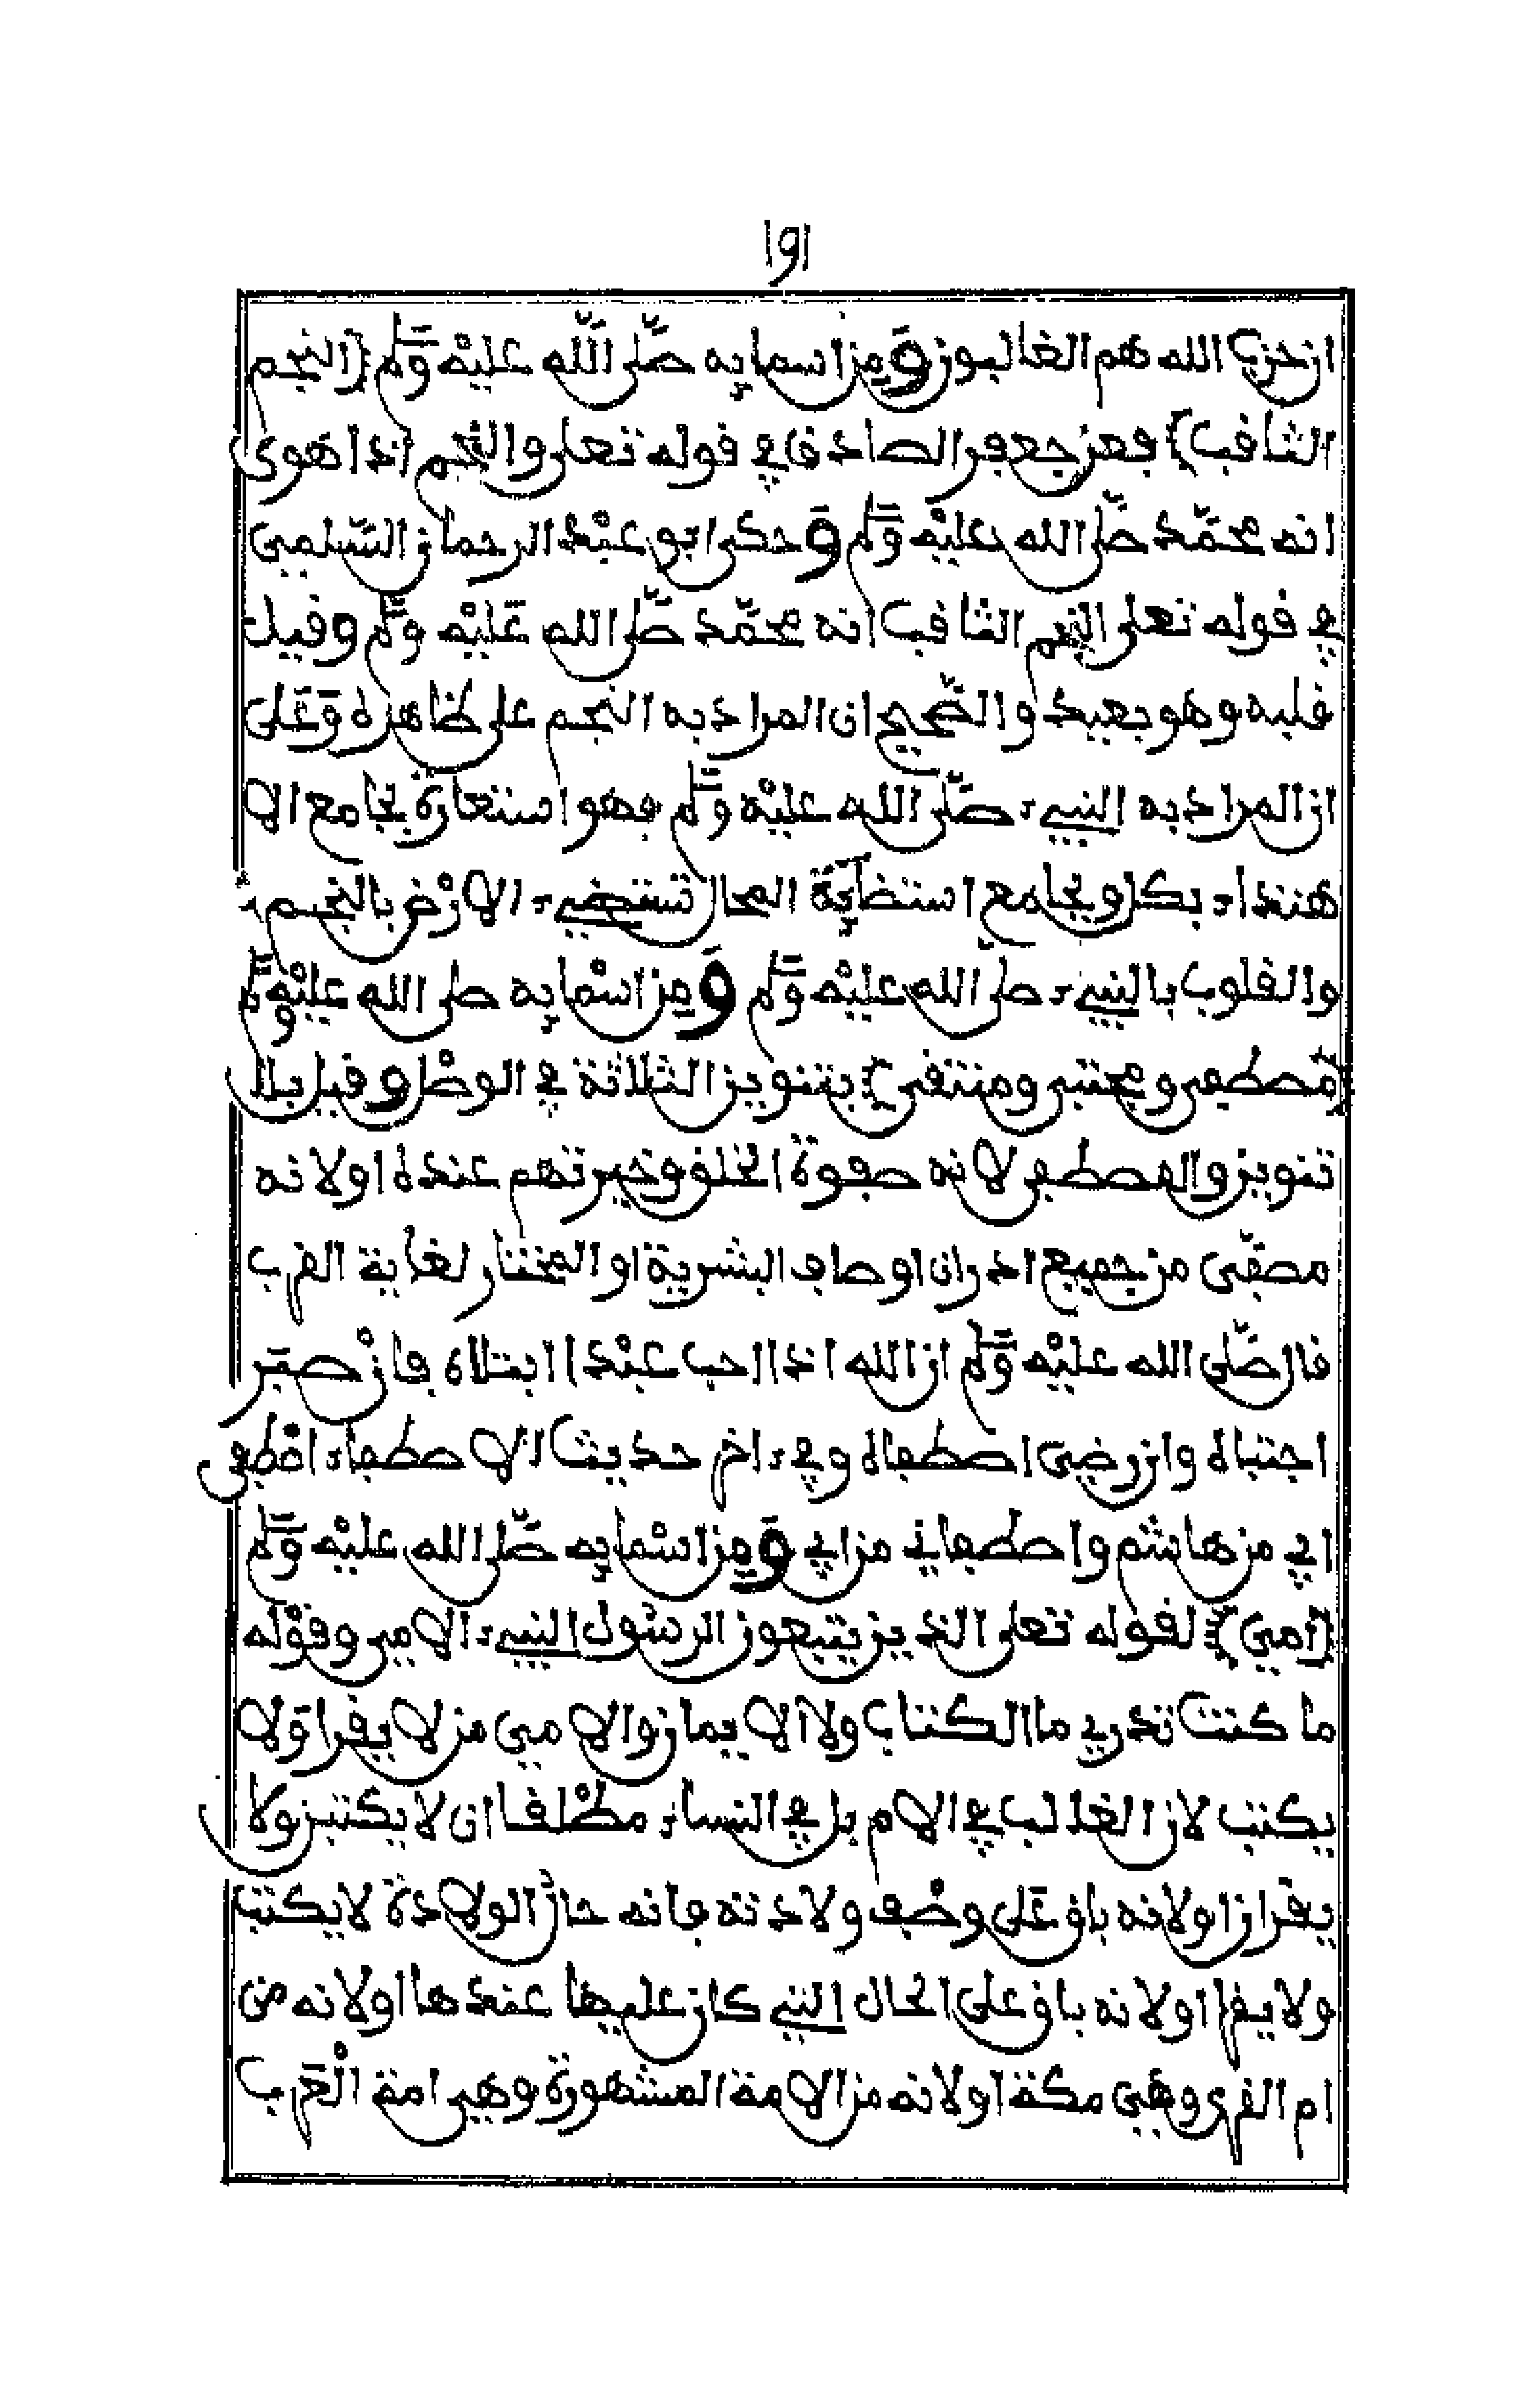 ١٩١
ان حزب الله هم الغالبون ومن اسمايه صلى الله عليه وسلم (النجم
الثاقب) فعن جعفر الصادق في قوله تعلى والنجم اذا هوى
انه محمد صلى الله عليه وسلم وحكى ابو عبد الرحمان السلمي
في قوله تعلى النجم الثاقب انه محمد صلى الله عليه وسلم وقيل
قلبه وهو بعيد والصحيح ان المراد به النجم على ظاهره وعلى
ان المراد به النبيء صلى الله عليه وسلم فهو استعارة بجامع الا
هتداء بكل وبجامع استضاية المحال تستضيء الارض بالنجم
والقلوب بالنبيء صلى الله عليه وسلم ومن اسمايه صلى الله عليه وسلم
(مصطفى ومجتبى ومنتقى) بتنوين الثلاثة في الوصل وقيل بلا
تنوين والمصطفى لانه صفوة الخلق وخيرتهم عنده او لانه
مصفى من جميع ادران اوصاف البشرية او المختار لغاية القرب
قال صلى الله عليه وسلم ان الله اذا احب عبدا ابتلاه فان صبر
اجتباه وان رضي اصطفاه وفيء اخر حديث الاصطفاء اصطفى
ابي من هاشم واصطفاني من ابي ومن اسمايه صلى الله عليه وسلم
(امي) لقوله تعلى الذين يتبعون الرسول النبيء الامي وقوله
ما كنت تدري ما الكتاب ولا الايمان والامي من لا يقرا ولا
يكتب لان الغالب في الام بل في النساء مطلقا ان لا يكتبن ولا
يقران او لانه باق على وصف ولادته فانه حال الولادة لا يكتب
ولا يقرا او لانه باق على الحال التي كان عليها عندها او لانه من
ام القرى وهي مكة او لانه من الامة المشهورة وهي امة العرب